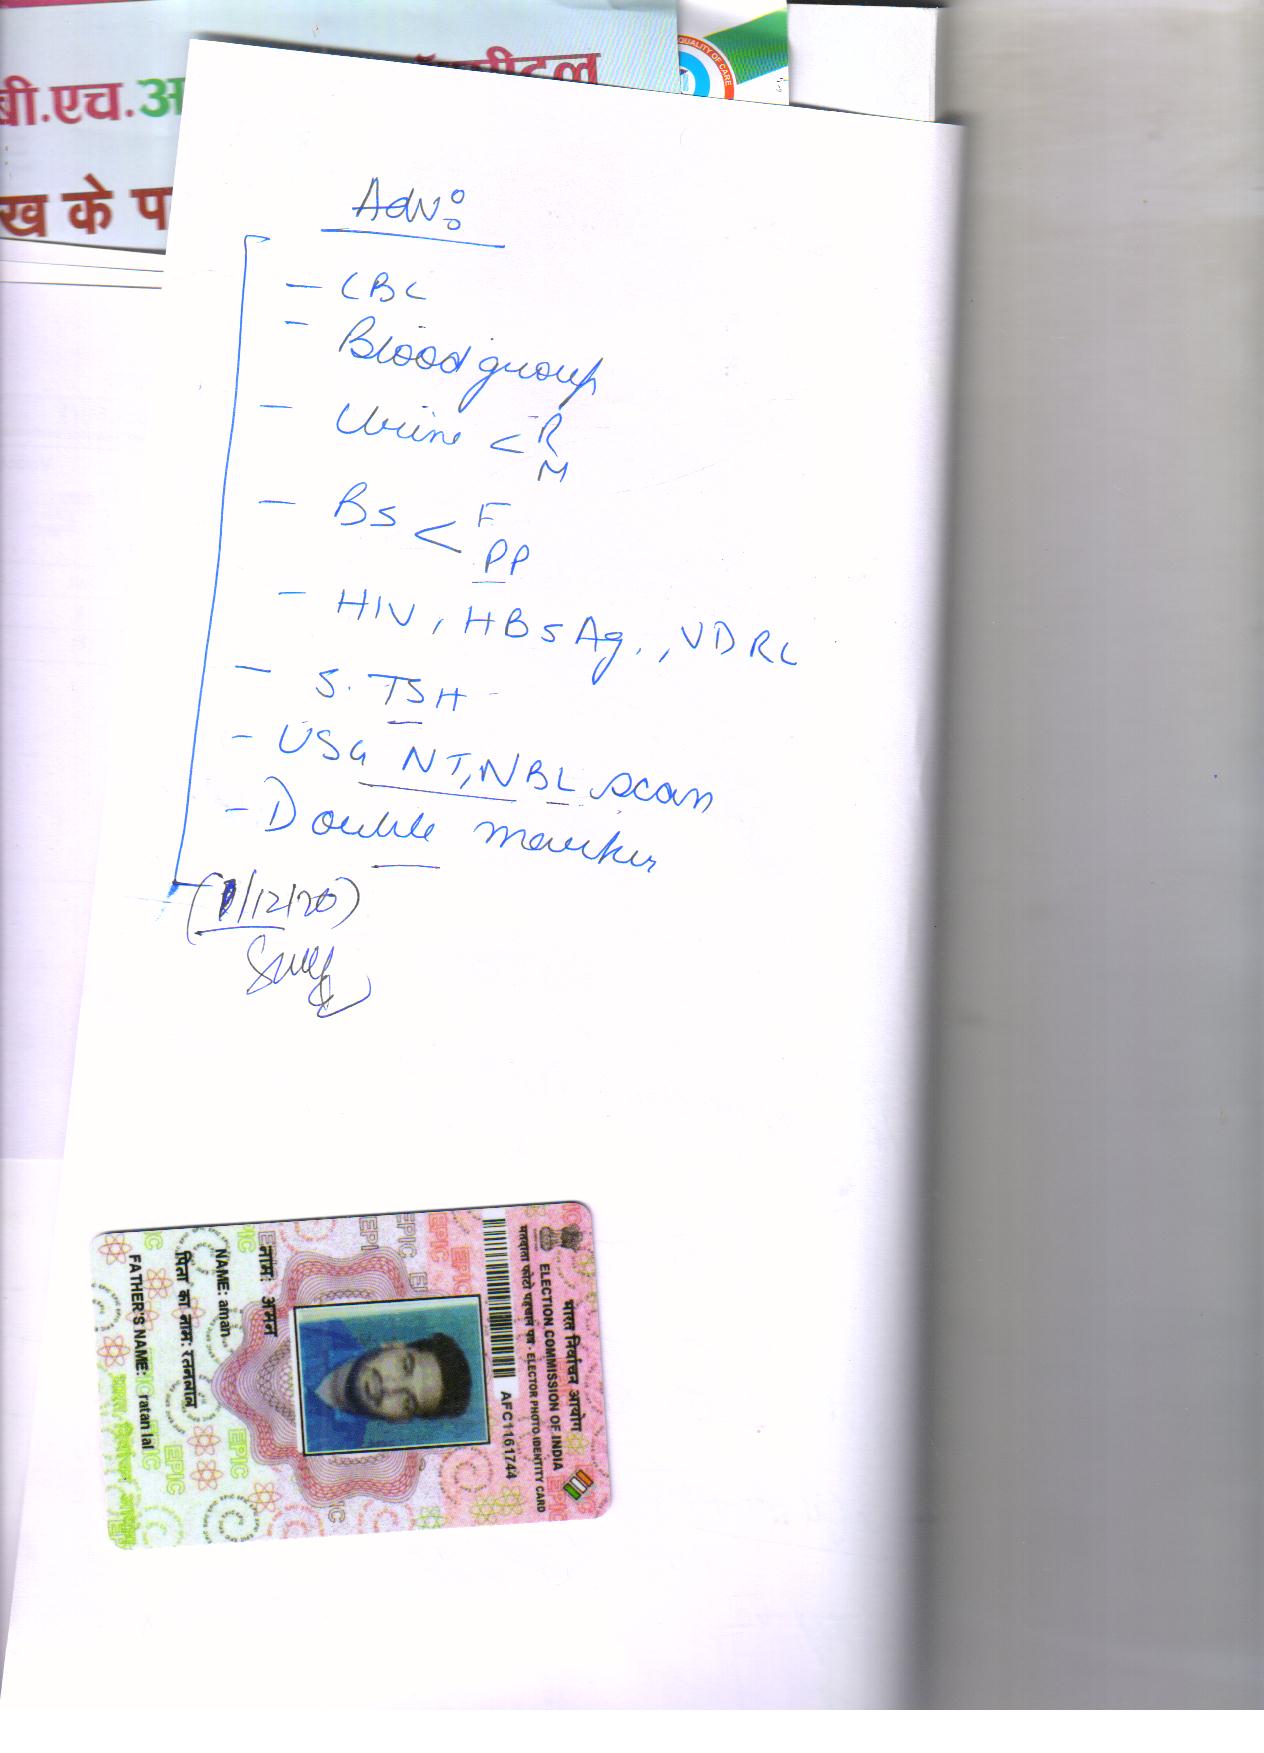 बी.एच.अ
QUALITY OF CARE
ख के प
Adv:
- CBC
- Blood group
- Urine < R
M
- BS < F
PP
- HIV, HBsAg, VDRL
- S. TSH
- USG NT, NBL scan
- Double marker
(1/12/20)
भारत निर्वाचन आयोग
ELECTION COMMISSION OF INDIA
मतदाता फोटो पहचान पत्र - ELECTOR PHOTO IDENTITY CARD
AFC1161744
नाम: अमन
NAME: aman
पिता का नाम: रतनलाल
FATHER'S NAME: ratan lal